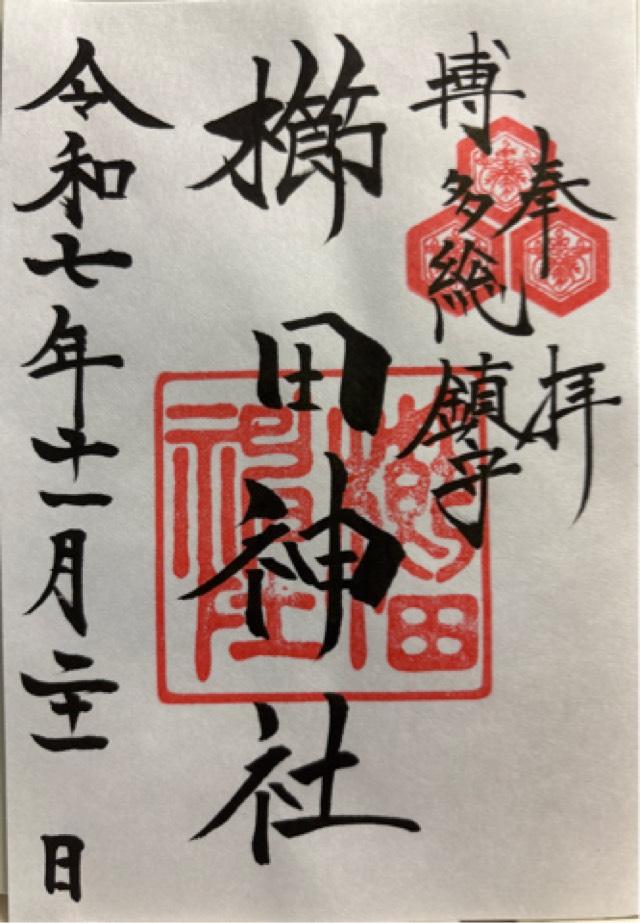 奉拝
博多総鎮守
櫛田神社
令和七年十一月二十一日
櫛田神社